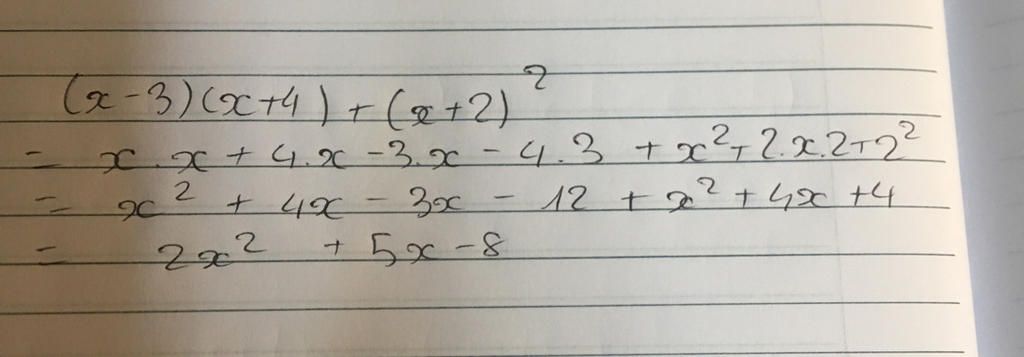 (x-3)(x+4) + (x+2)²
= x.x + 4.x - 3.x - 4.3 + x² + 2.x.2 + 2²
= x² + 4x - 3x - 12 + x² + 4x + 4
= 2x² + 5x - 8